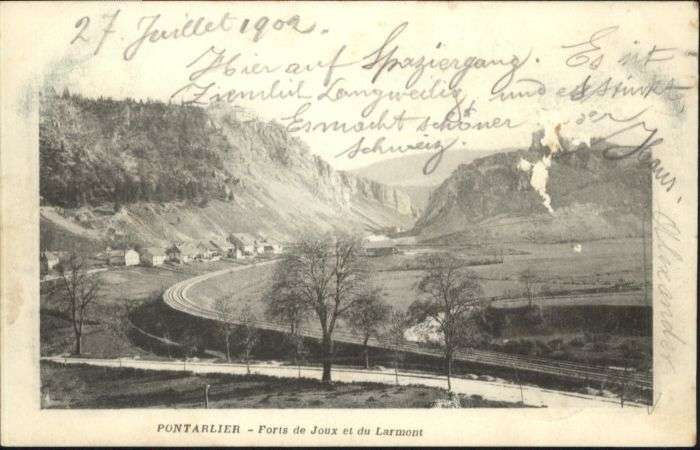 27. Juillet 1902.
Hier auf Spaziergang. Es ist
Ziemlich Langweilig und es stinkt.
Es macht schöner der
Schweiz.
Alexander
PONTARLIER – Forts de Joux et du Larmont